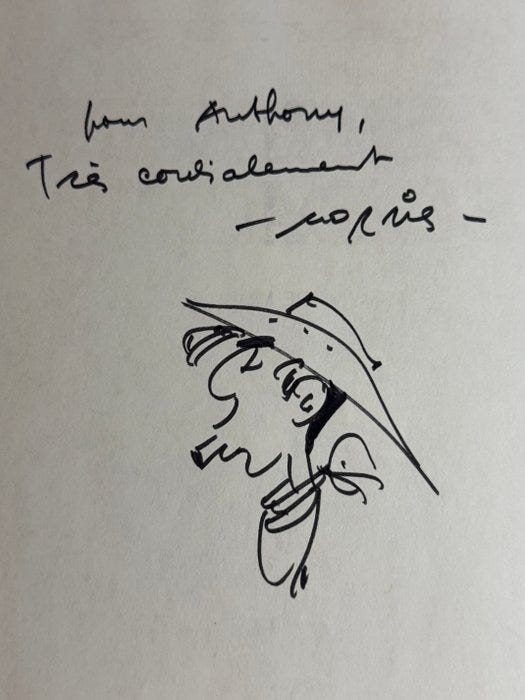 pour Anthony,
Très cordialement
- MORRIS -